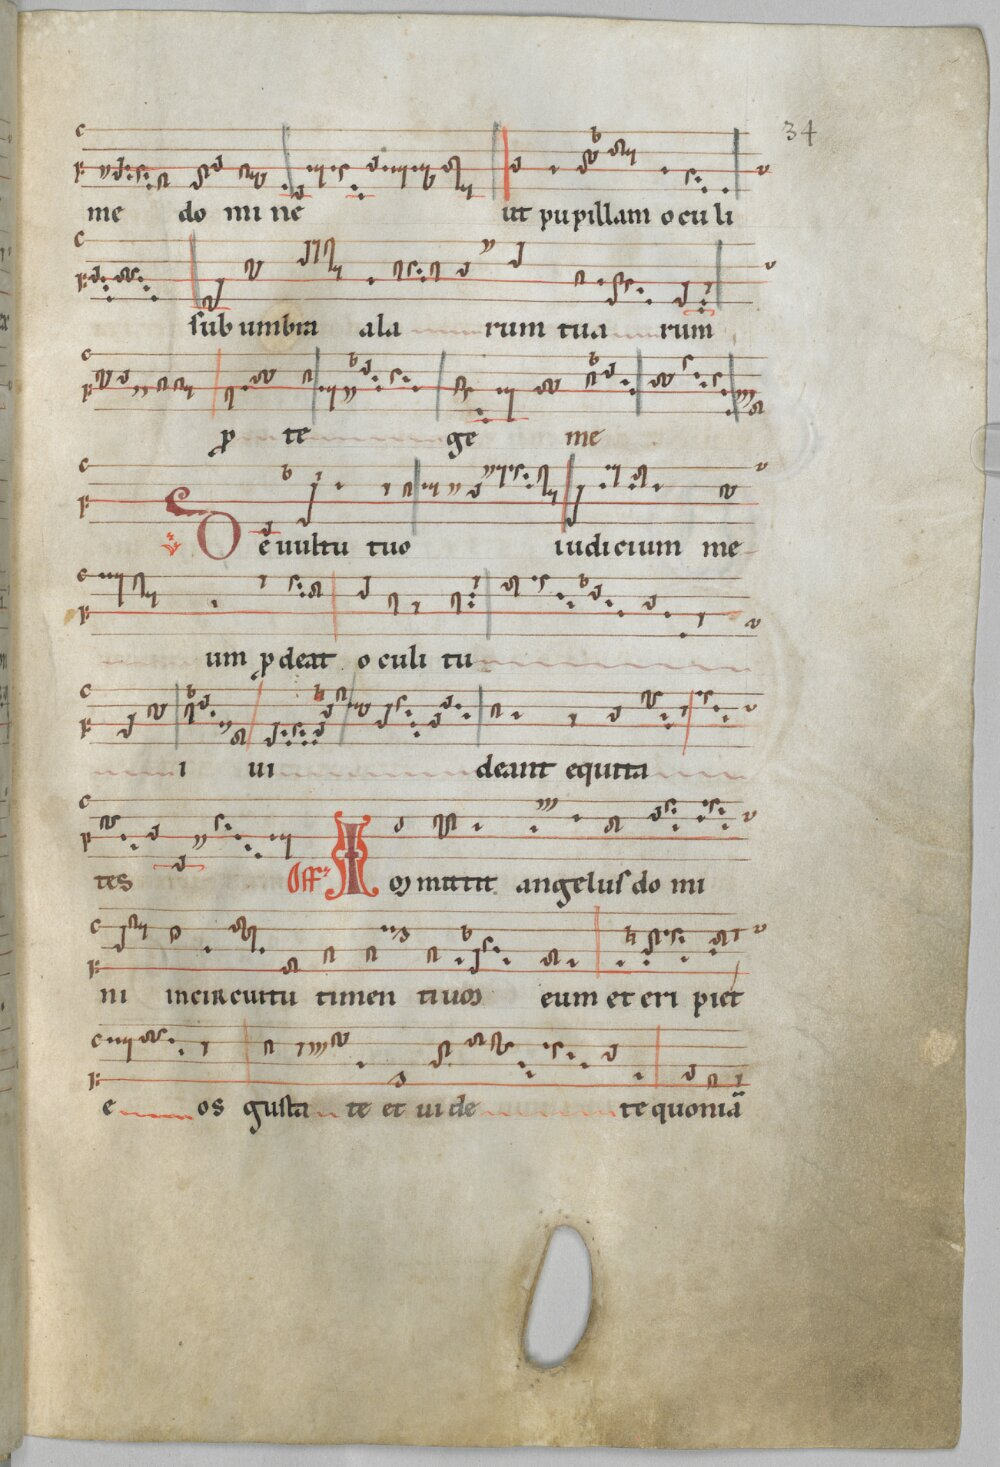 34
me do mi ne ut pupillam oculi
sub umbra ala rum tua rum
p te ge me
De uultu tuo iudicium me
um pdeat oculi tu
i ui deant equita
tes Off Inmittit angelus do mi
ni incircuitu timen tium eum et eri piet
e os gusta te et uide te quoniā